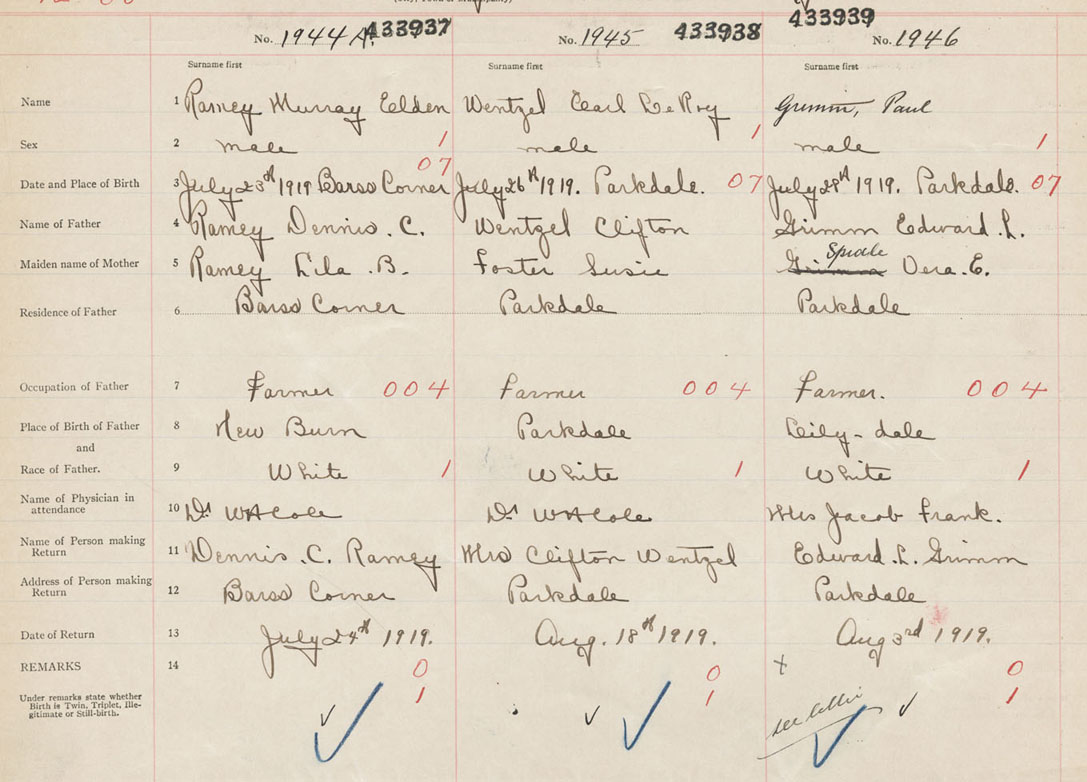 No. 1944 A. 433937 No. 1945 433938 433939 No. 1946
Surname first Surname first Surname first
Name 1 Ramey Murray Eelden Wentzel Earl LeRoy Grimm, Paul
Sex 2 male 1 male 1 male 1
Date and Place of Birth 3 July 23rd 1919 Barss Corner 07 July 26th 1919. Parkdale. 07 July 28th 1919. Parkdale. 07
Name of Father 4 Ramey Dennis. C. Wentzel Clifton Grimm Edward. L.
Maiden name of Mother 5 Ramey Lila. B. Foster Susie Vera. E.
Residence of Father 6 Barss Corner Parkdale Parkdale
Occupation of Father 7 Farmer 004 Farmer 004 Farmer. 004
Place of Birth of Father 8 New Burn Parkdale Leily-dale
and
Race of Father. 9 White 1 White 1 White 1
Name of Physician in
attendance 10 Dr WH Cole Dr WH Cole Mrs Jacob Frank.
Name of Person making
Return 11 Dennis. C. Ramey Mrs Clifton Wentzel Edward. L. Grimm
Address of Person making
Return 12 Barss Corner Parkdale Parkdale
Date of Return 13 July 24th 1919. Aug. 18th 1919. Aug 3rd 1919.
REMARKS 14 0 0 x 0
Under remarks state whether
Birth is Twin, Triplet, Ille-
gitimate or Still-birth. 1 1 1